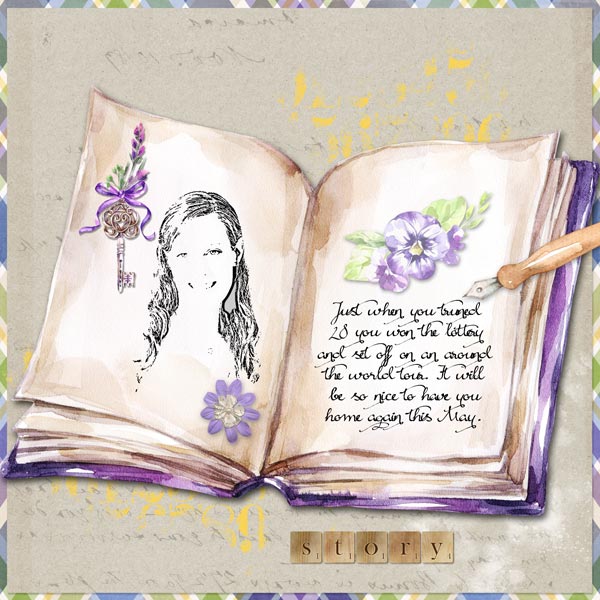 Just when you turned
28 you won the lottery
and set off on an around
the world tour. It will
be so nice to have you
home again this May.
story